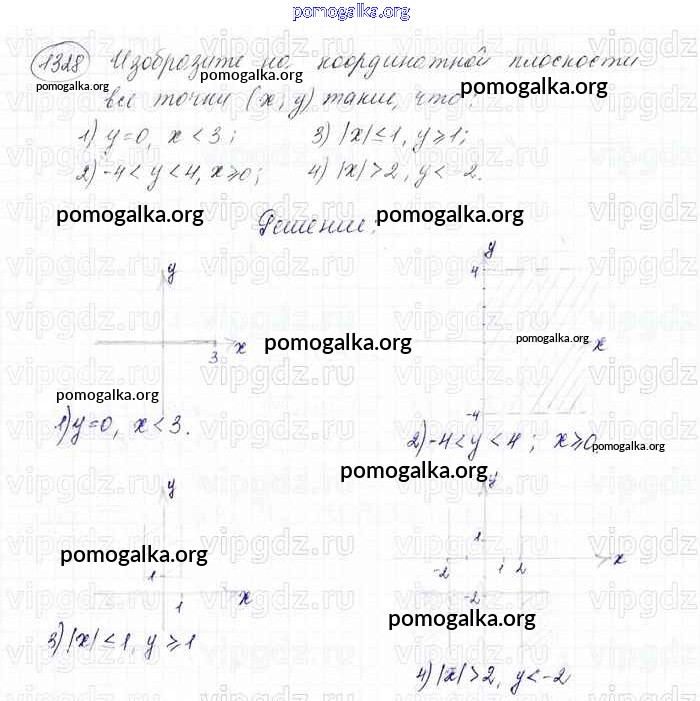 pomogalka.org
1328 Изобразите на координатной плоскости
pomogalka.org pomogalka.org
все точки (x; y) такие, что:
pomogalka.org
1) y=0, x<3; 3) |x|≤1, y≥1;
2) -4<y<4, x≥0; 4) |x|>2, y<-2.
pomogalka.org pomogalka.org
Решение:
y y
4
3 x pomogalka.org pomogalka.org x
pomogalka.org
-4
1) y=0, x<3.
2) -4<y<4; x≥0 pomogalka.org
pomogalka.org
y y
pomogalka.org
1 1
-2 1 2 x
1 x -2
pomogalka.org
3) |x|≤1, y≥1
4) |x|>2, y<-2
vipgdz.ru